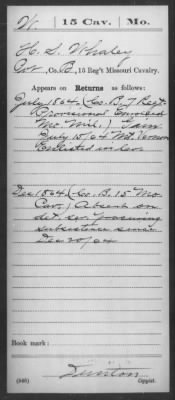 W. | 15 Cav. | Mo.
H. S. Whaley
Cor, Co. B, 15 Reg't Missouri Cavalry.
Appears on Returns as follows:
July 1864, (Co. B, 7 Regt
Provisional Enrolled
Mo. Mil.) Gain
July 15/64 Mt Vernon
Enlisted in
Dec 1864 (Co. B. 15" Mo.
Cav.) Absent on
det. ser. procuring
subsistence since
Dec 20/64
Book mark:
(546)
Dunton
Copyist.